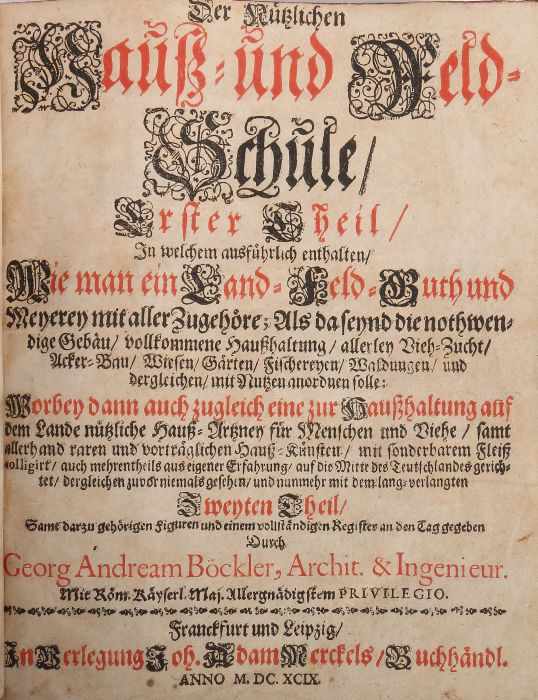 Der Nützlichen
Hauß- und Feld-
Schule/
Erster Theil/
In welchem ausführlich enthalten/
Wie man ein Land- Feld- Guth und
Meyerey mit aller Zugehöre; Als da seynd die nothwen-
dige Gebäu/ vollkommene Haußhaltung/ allerley Vieh-Zucht/
Acker-Bau/ Wiesen/ Gärten/ Fischereyen/ Waldungen/ und
dergleichen/ mit Nutzen anordnen solle:
Worbey dann auch zugleich eine zur Haußhaltung auf
dem Lande nützliche Hauß- Artzney für Menschen und Viehe/ samt
allerhand raren und vorträglichen Hauß-Künsten/ mit sonderbarem Fleiß
colligirt/ auch mehrentheils aus eigener Erfahrung/ auf die Mitte des Teutschlandes gerich-
tet/ dergleichen zuvor niemals gesehen/ und nunmehr mit dem lang-verlangten
Zweyten Theil/
Samt darzu gehörigen Figuren und einem vollständigen Register an den Tag gegeben
Durch
Georg Andream Böckler, Archit. & Ingenieur.
Mit Röm. Käyserl. Maj. Allergnädigstem PRIVILEGIO.
Franckfurt und Leipzig/
In Verlegung Joh. Adam Merckels/ Buchhändl.
ANNO M. DC. XCIX.